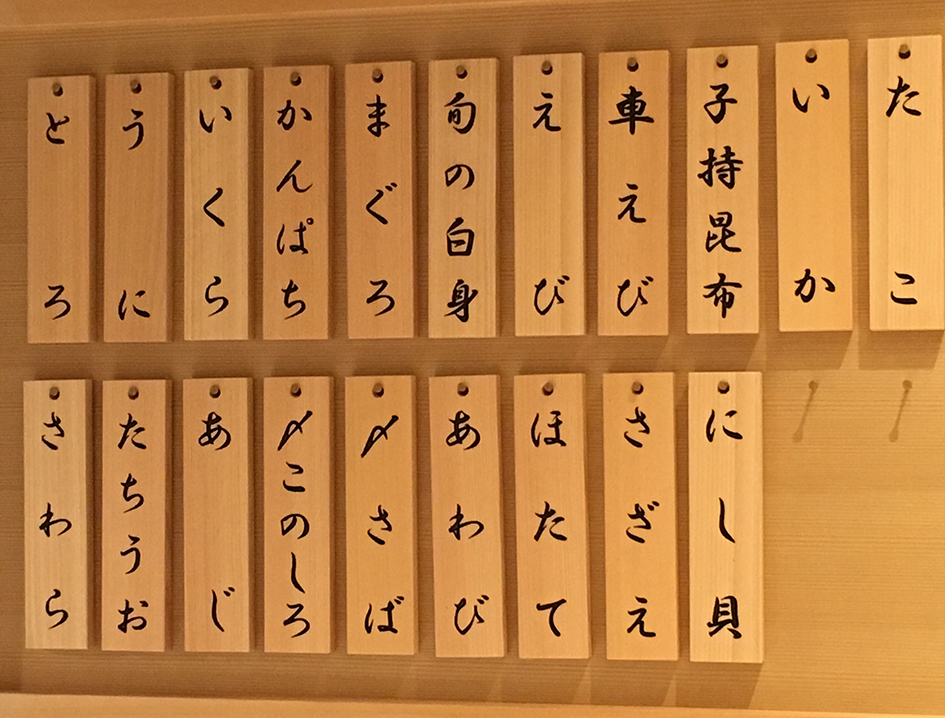 たこ
いか
子持昆布
車えび
えび
旬の白身
まぐろ
かんぱち
いくら
うに
とろ
にし貝
さざえ
ほたて
あわび
〆さば
〆このしろ
あじ
たちうお
さわら